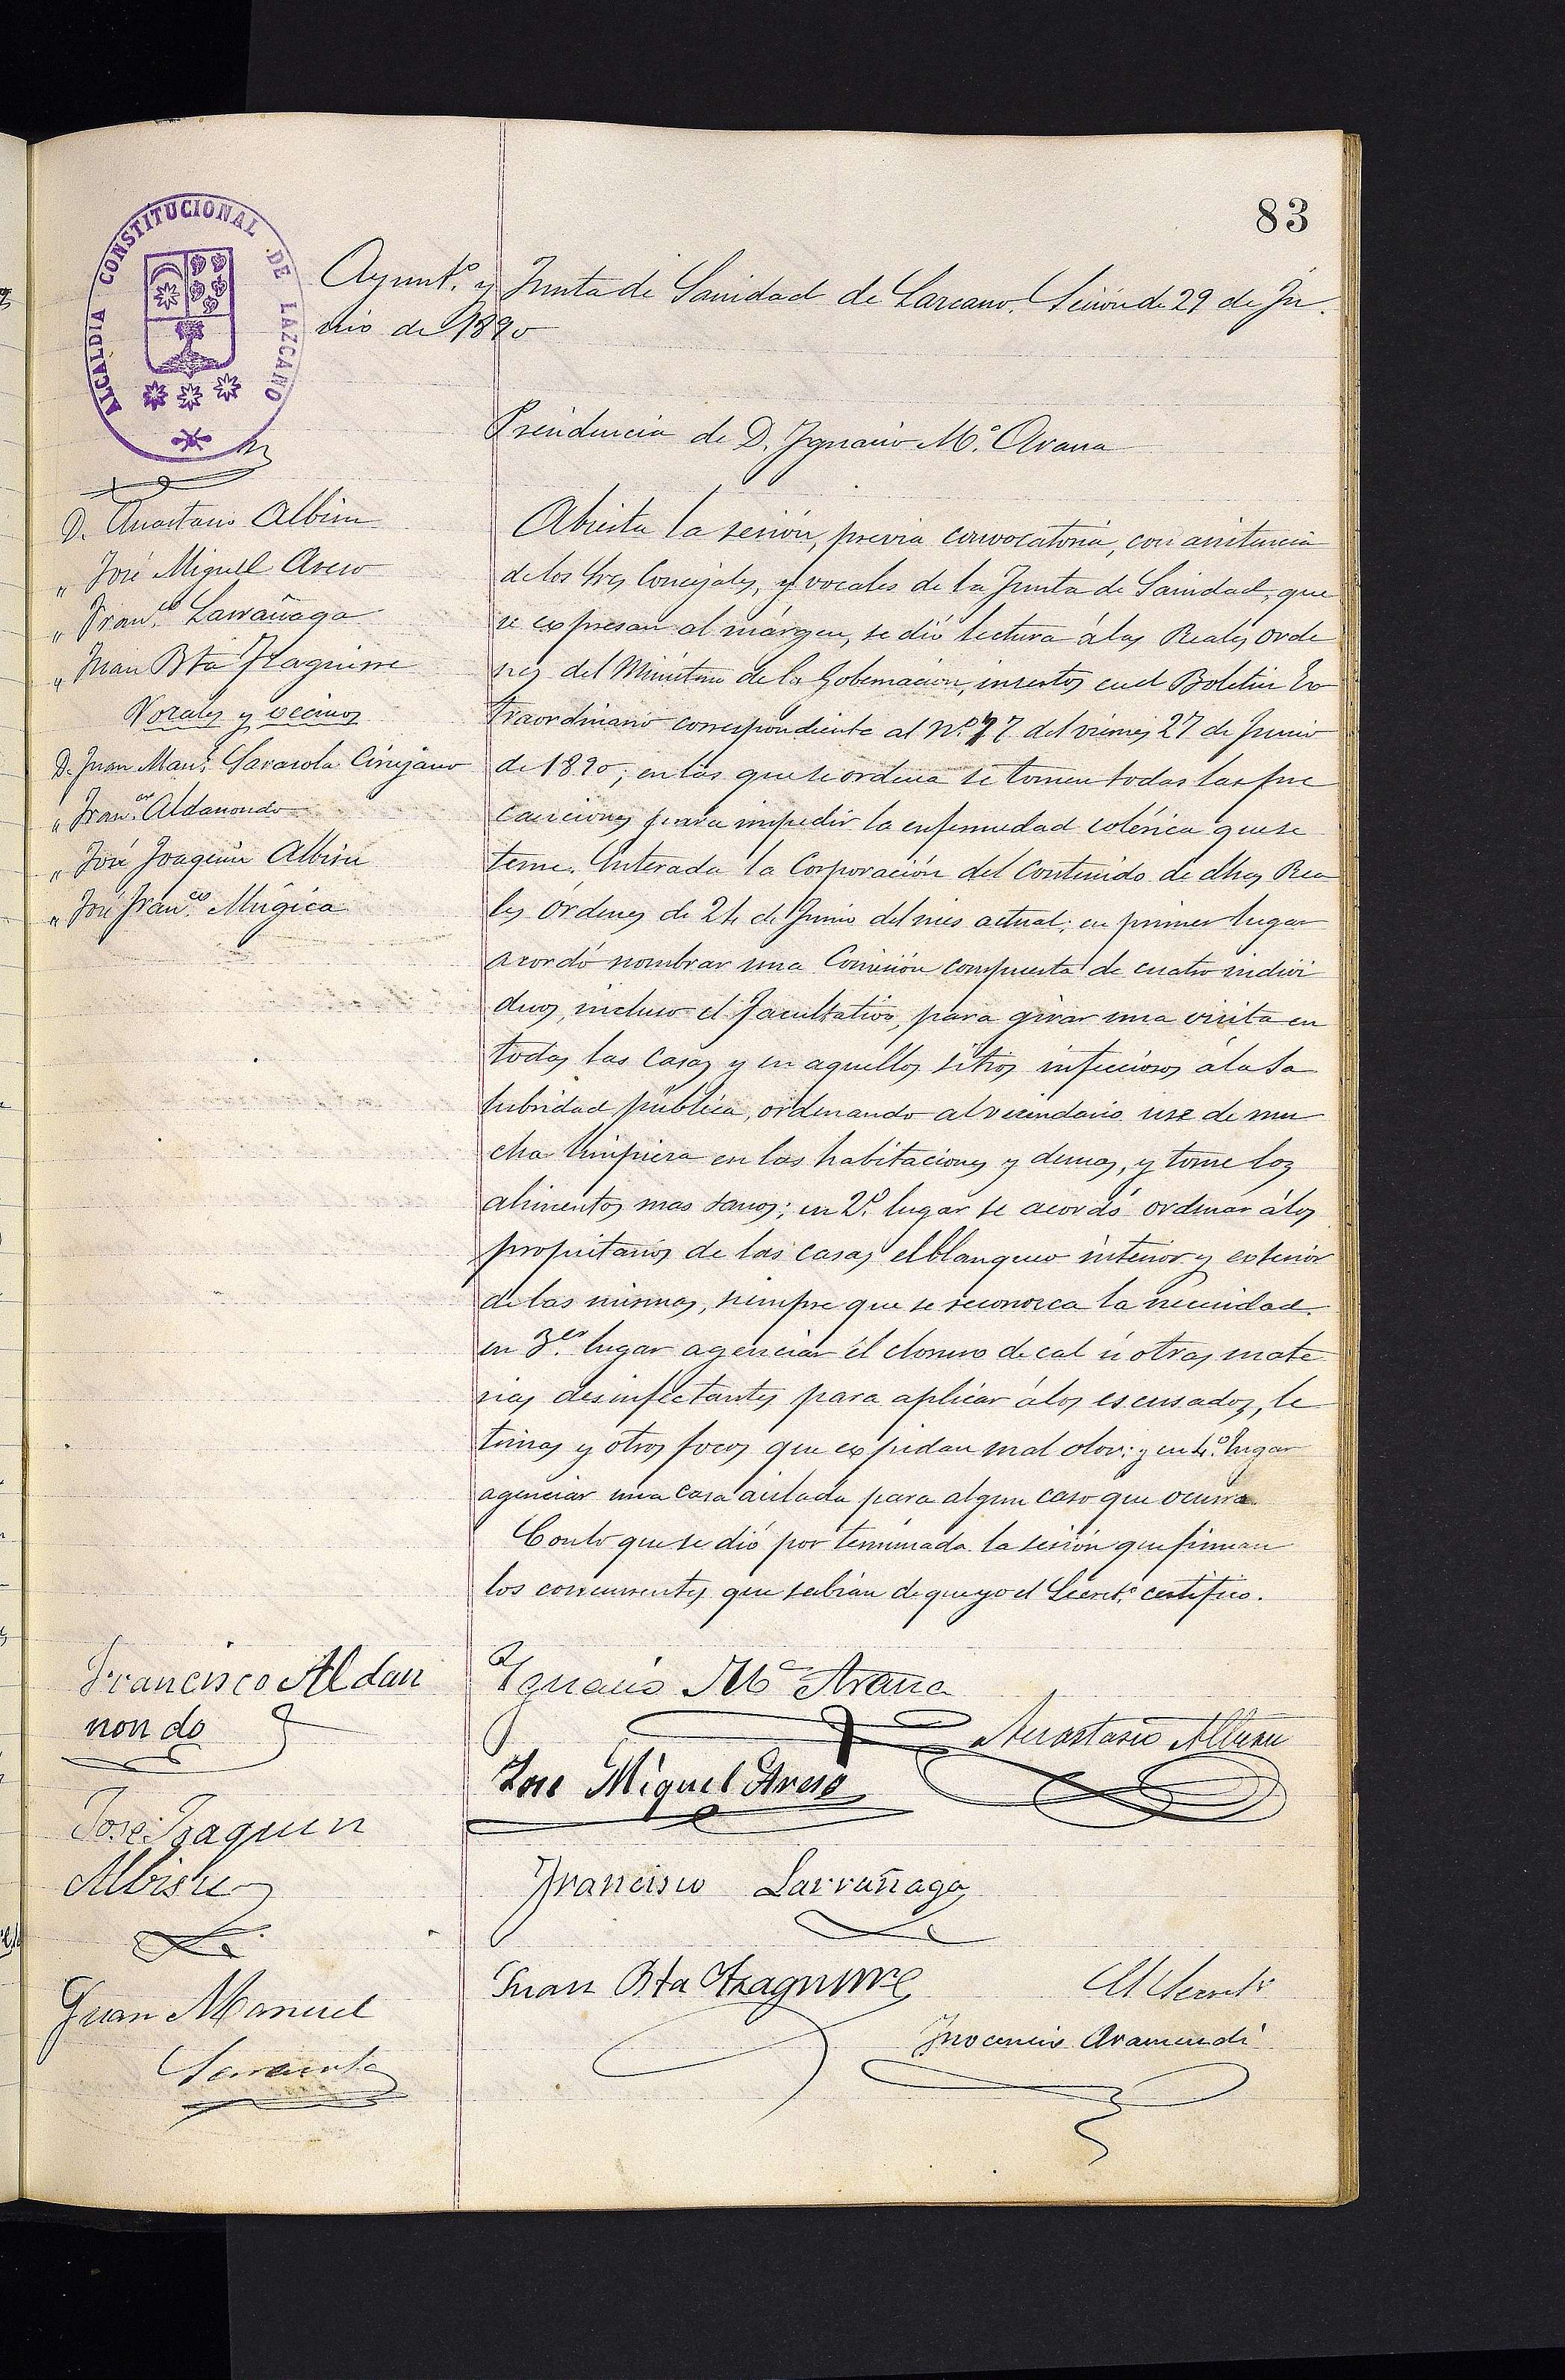 83
ALCALDIA CONSTITUCIONAL DE LAZCANO
Ayunt.º y Junta de Sanidad de Lazcano. Sesión de 29 de Ju
nio de 1890
Presidencia de D. Ignacio M.ª Arana
D. Anastasio Albisu
" José Miguel Aseso
" Fran.co Larrañaga
" Juan Bta Iraguirre
Vocales y vecinos
D. Juan Man.l Sarasola Cirujano
" Fran.co Aldanondo
" José Joaquin Albisu
" José Fran.co Múgica
Abierta la sesión, previa convocatoria, con asistencia
de los Sres Concejales, y vocales de la Junta de Sanidad, que
se expresan al márgen, se dió lectura á las Reales orde
nes del Ministerio de la Gobernación, insertos en el Boletin Ex
traordinario correspondiente al Nº. 77 del viernes 27 de Junio
de 1890; en las que se ordena se tomen todas las pre
cauciones para impedir la enfermedad colérica que se
teme. Enterada la Corporación del contenido de dhas Rea
les órdenes de 24 de Junio del mes actual; en primer lugar
acordó nombrar una Comisión compuesta de cuatro indivi
duos, incluso el facultativo, para girar una visita en
todas las casas y en aquellos sitios infecciosos á la sa
lubridad pública, ordenando al vecindario use de mu
cha limpieza en las habitaciones y demas, y tome los
alimentos mas sanos; en 2º. lugar se acordó ordenar á los
propietarios de las casas el blanqueo interior y exterior
de las mismas, siempre que se reconozca la necesidad.
en 3.er lugar agenciar el cloruro de cal ú otras mate
rias desinfectantes para aplicar á los escusados, le
trinas y otros focos que expidan mal olor: y en 4.º lugar
agenciar una casa aislada para algun caso que ocurra.
Con lo que se dió por terminada la sesión que firman
los concurrentes que sabian de que yo el Secret.º certifico.
Francisco Aldan
nondo
Ignacio M.ª Arana
Anastasio Albisu
Jose Miguel Aseso
Jose Joaquin
Albisu
Francisco Larrañaga
Juan Manuel
Juan Bta Iraguirre
El Secret.º
Inocencio Aramendi